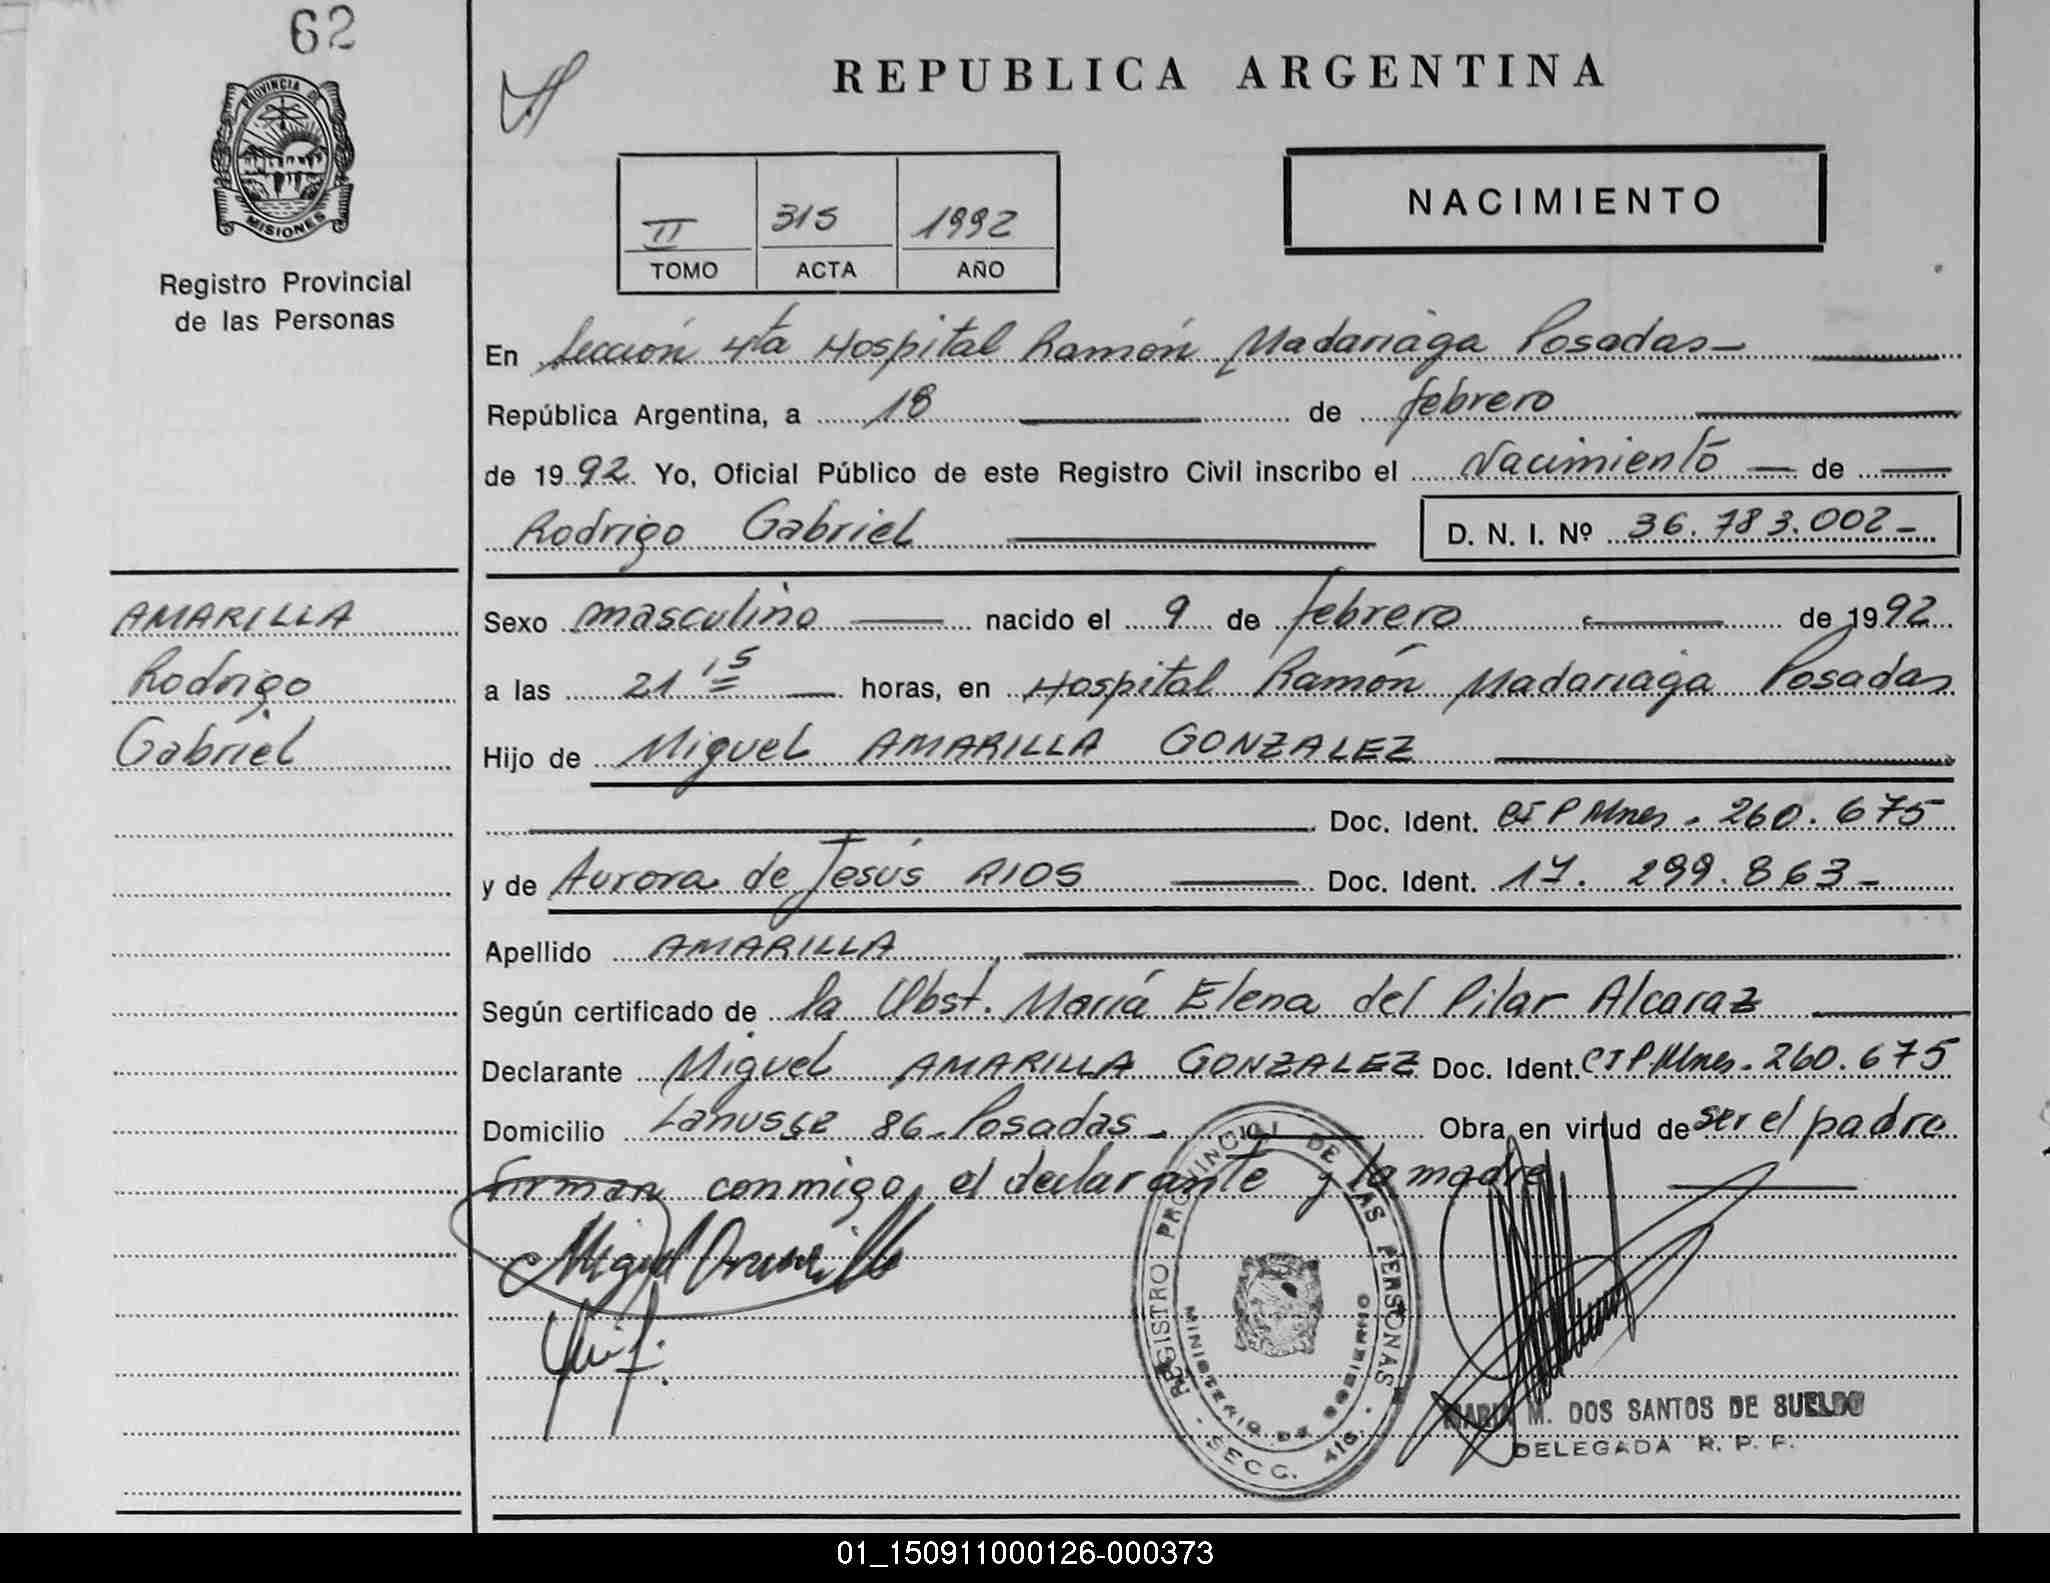 62
PROVINCIA DE
MISIONES
Registro Provincial
de las Personas
REPUBLICA ARGENTINA
NACIMIENTO
II 315 1992
TOMO ACTA AÑO
En Sección 4ta Hospital Ramón Madariaga Posadas
República Argentina, a 18 de febrero
de 1992 Yo, Oficial Público de este Registro Civil inscribo el Nacimiento de
Rodrigo Gabriel D. N. I. Nº 36.783.002
AMARILLA
Rodrigo
Gabriel
Sexo masculino nacido el 9 de febrero de 1992
a las 21 15 horas, en Hospital Ramón Madariaga Posadas
Hijo de Miguel AMARILLA GONZALEZ
Doc. Ident. CI P Mnes. 260.675
y de Aurora de Jesús RIOS Doc. Ident. 17.299.863
Apellido AMARILLA
Según certificado de la Obst. María Elena del Pilar Alcaraz
Declarante Miguel AMARILLA GONZALEZ Doc. Ident. CI P Mnes. 260.675
Domicilio Lanusse 86 Posadas Obra en virtud de ser el padre
Firman conmigo, el declarante y la madre
Miguel Amarilla
REGISTRO PROVINCIAL DE LAS PERSONAS
MINISTERIO DE GOBIERNO
SECC. 4ta.
MARIA M. DOS SANTOS DE SUELDO
DELEGADA R. P. P.
01_150911000126-000373